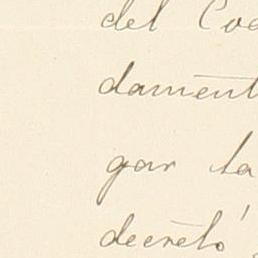 del Co
dament
gar la
decretó